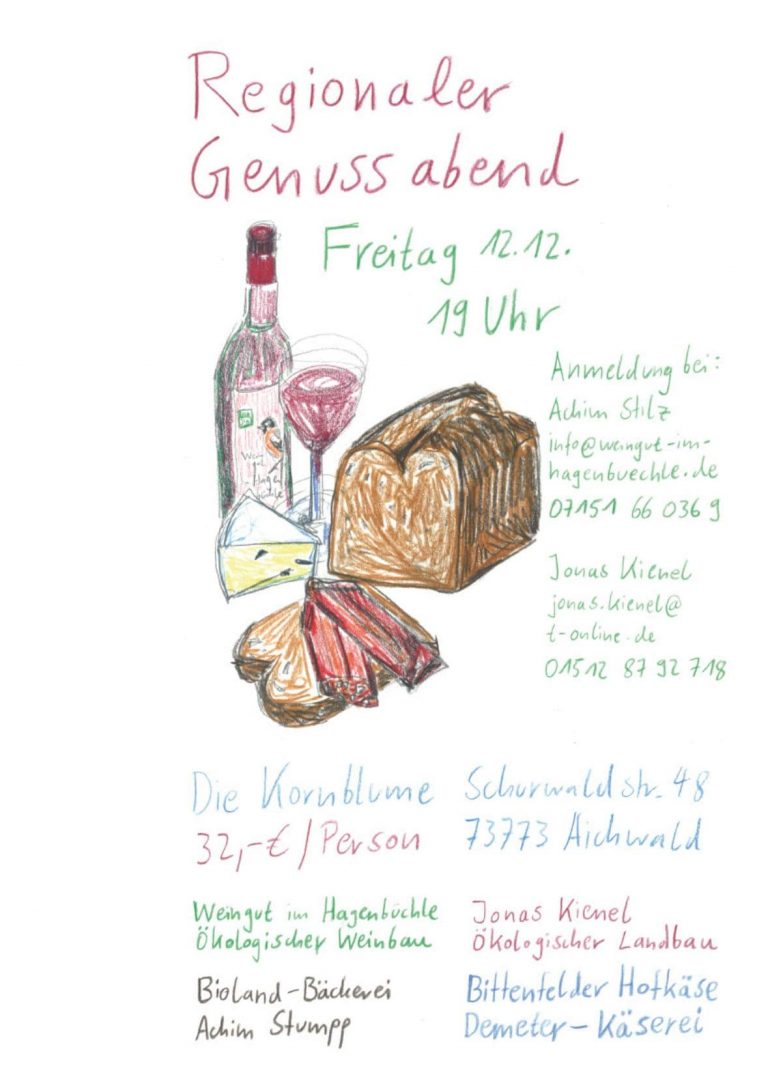 Regionaler
Genussabend
Freitag 12.12.
19 Uhr
Anmeldung bei:
Achim Stilz
info@weingut-im-
hagenbuechle.de
07151 66 036 9
Jonas Kienel
jonas.kienel@
t-online.de
01512 87 92 718
Die Kornblume
32,-€/Person
Schurwaldstr. 48
73773 Aichwald
Weingut im Hagenbüchle
Ökologischer Weinbau
Jonas Kienel
Ökologischer Landbau
Bioland-Bäckerei
Achim Stumpp
Bittenfelder Hofkäse
Demeter-Käserei